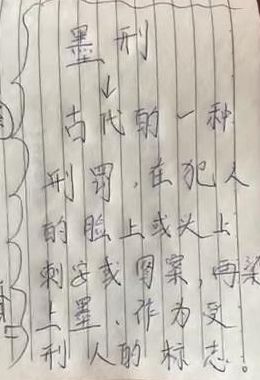 墨刑
↓
古代的一种
刑罚，在犯人
的脸上或头上
刺字或图案，再染
上墨，作为受
刑人的标志。